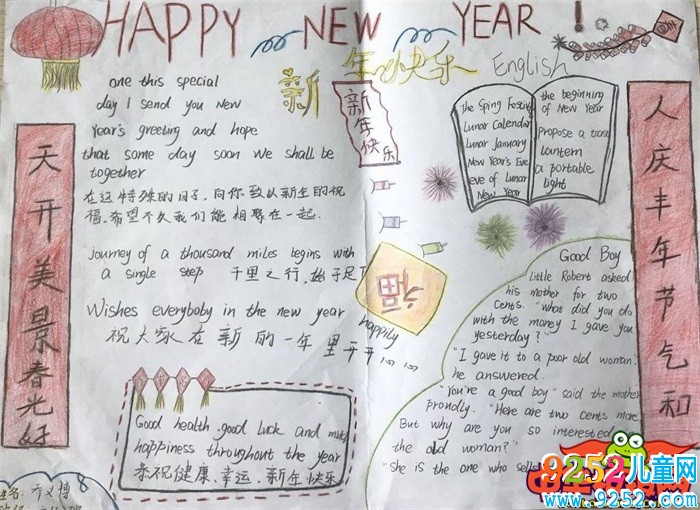 HAPPY NEW YEAR !
新年快乐 English
one this special
day I send you New
Year's greeting and hope
that some day soon we shall be
together
在这特殊的日子,向你致以新年的祝
福,希望不久我们能相聚在一起.
journey of a thousand miles begins with
a single step 千里之行,始于足下
Wishes everybody in the new year happily
祝大家在新的一年里开开心心
Good health,good luck and much
happiness throughout the year
恭祝健康、幸运,新年快乐
天开美景春光好
新年快乐
福
The Sping Festival
Lunar Calendar
Lunar January
New Year's Eve
eve of lunar
New Year
the beginning
of New Year
Propose a toast
launtern
a portable
light
人庆丰年节气和
Good Boy
Little Robert asked
his mother for two
cents. "What did you do
with the money I gave you
yesterday?"
"I gave it to a poor old woman."
he answered.
"You're a good boy" said the mother
prondly. "Here are two cents more
But why are you so interested
the old woman?"
"She is the one who sells
9252儿童网
www.9252.com